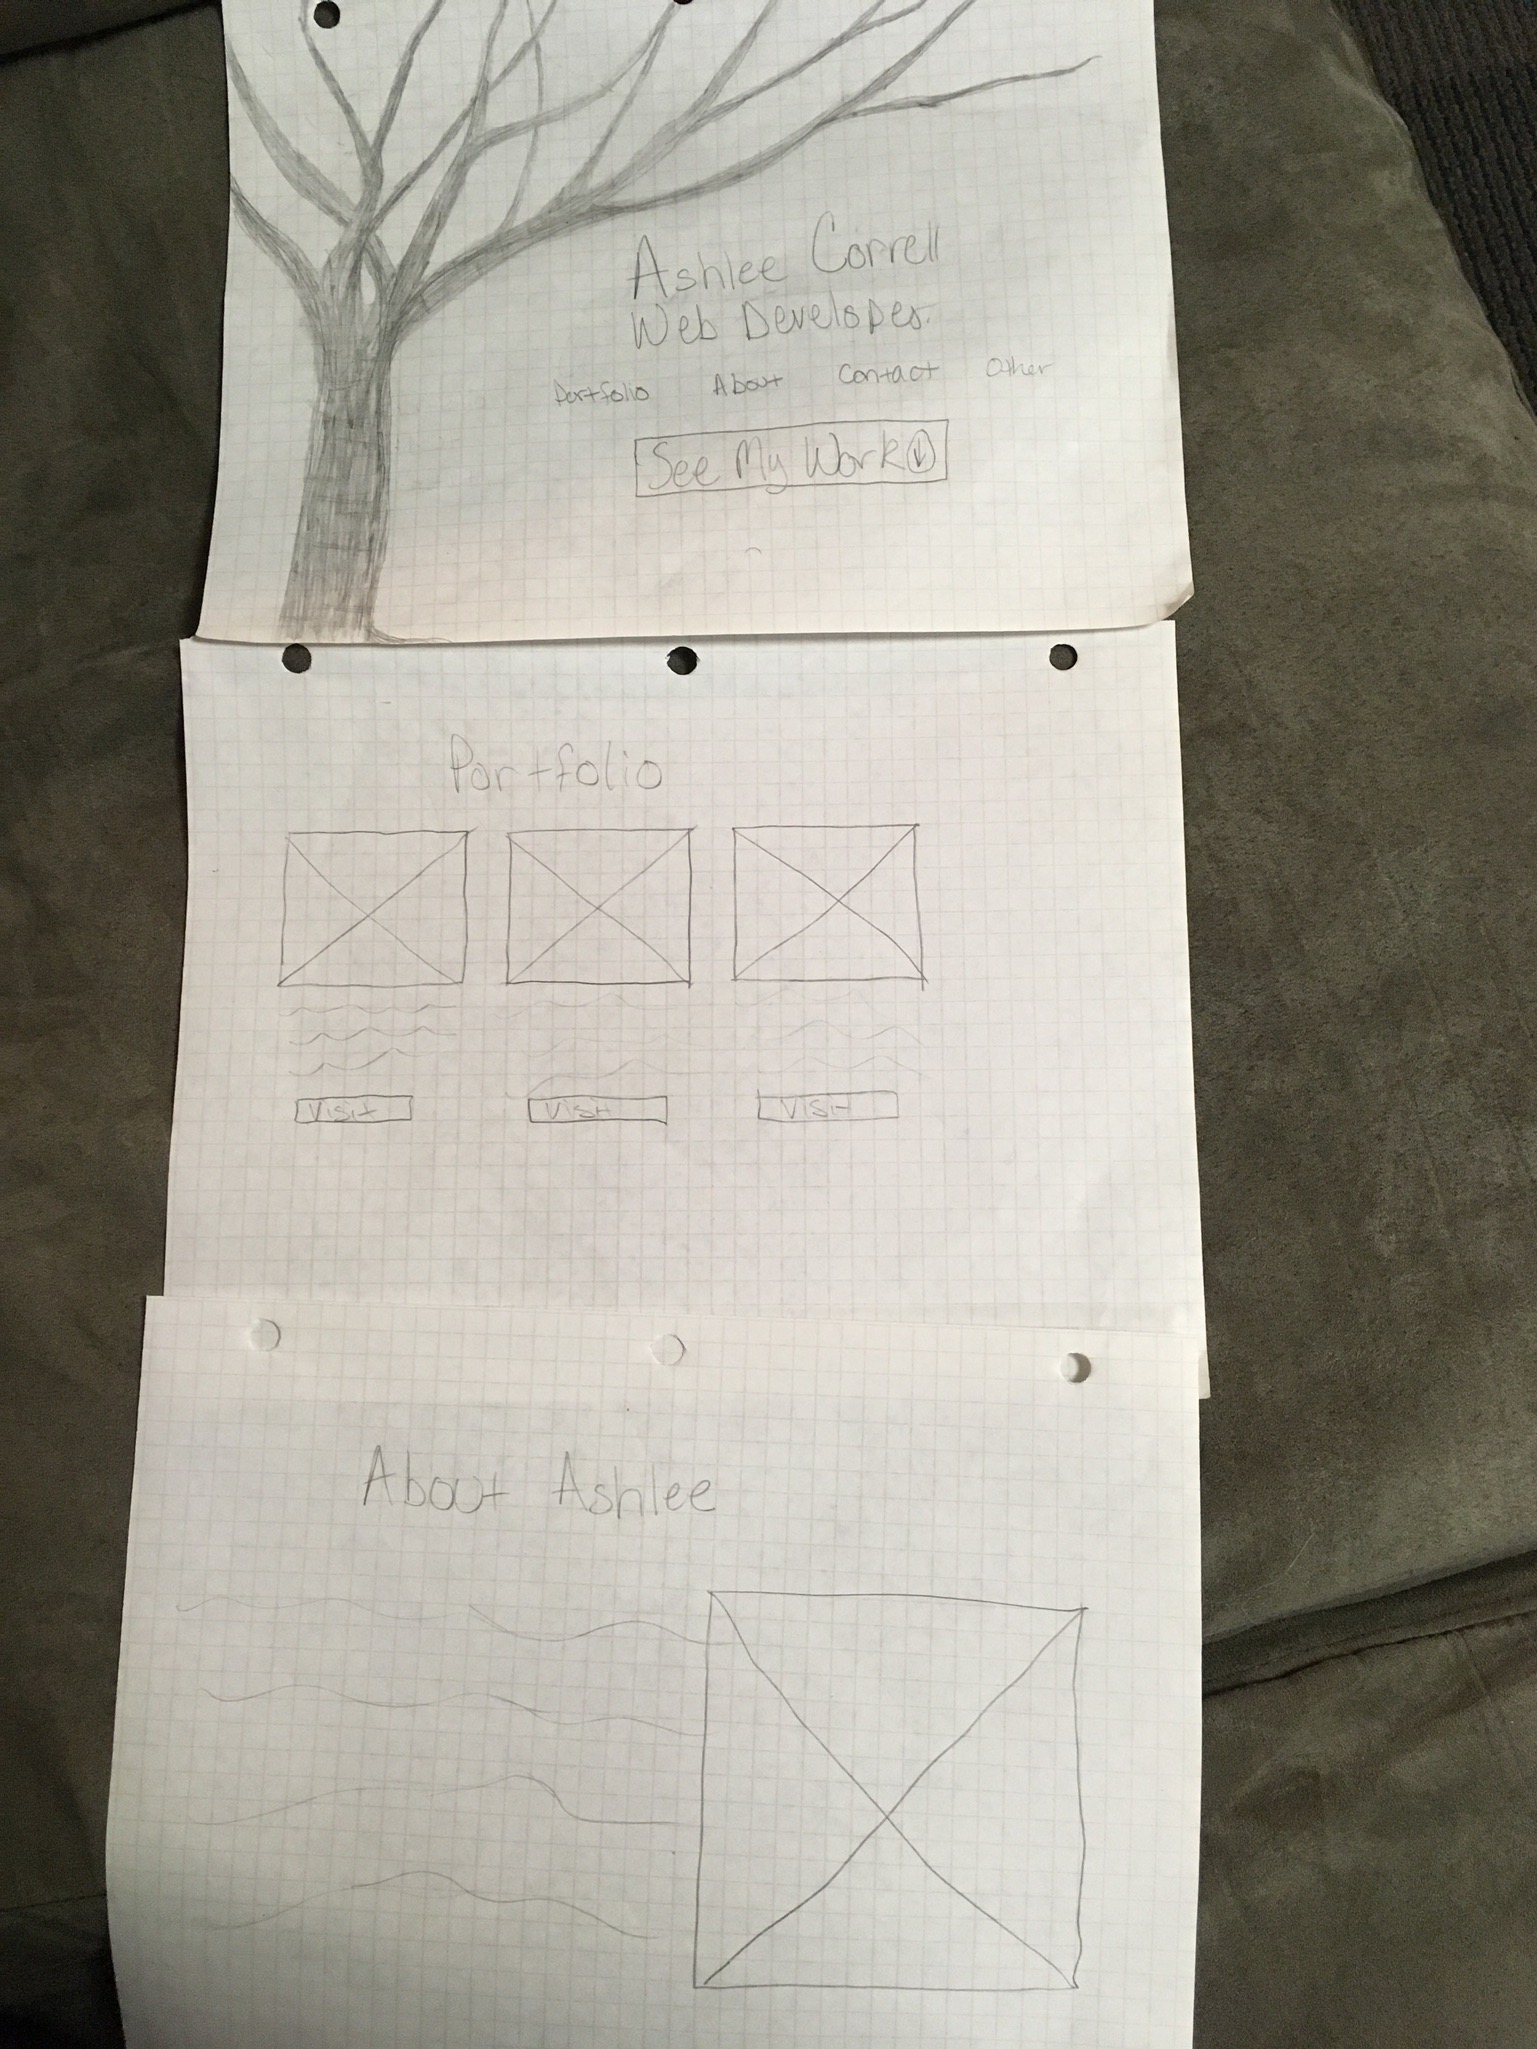 Ashlee Correll
Web Developer
Portfolio About Contact Other
See My Work
Portfolio
Visit Visit Visit
About Ashlee